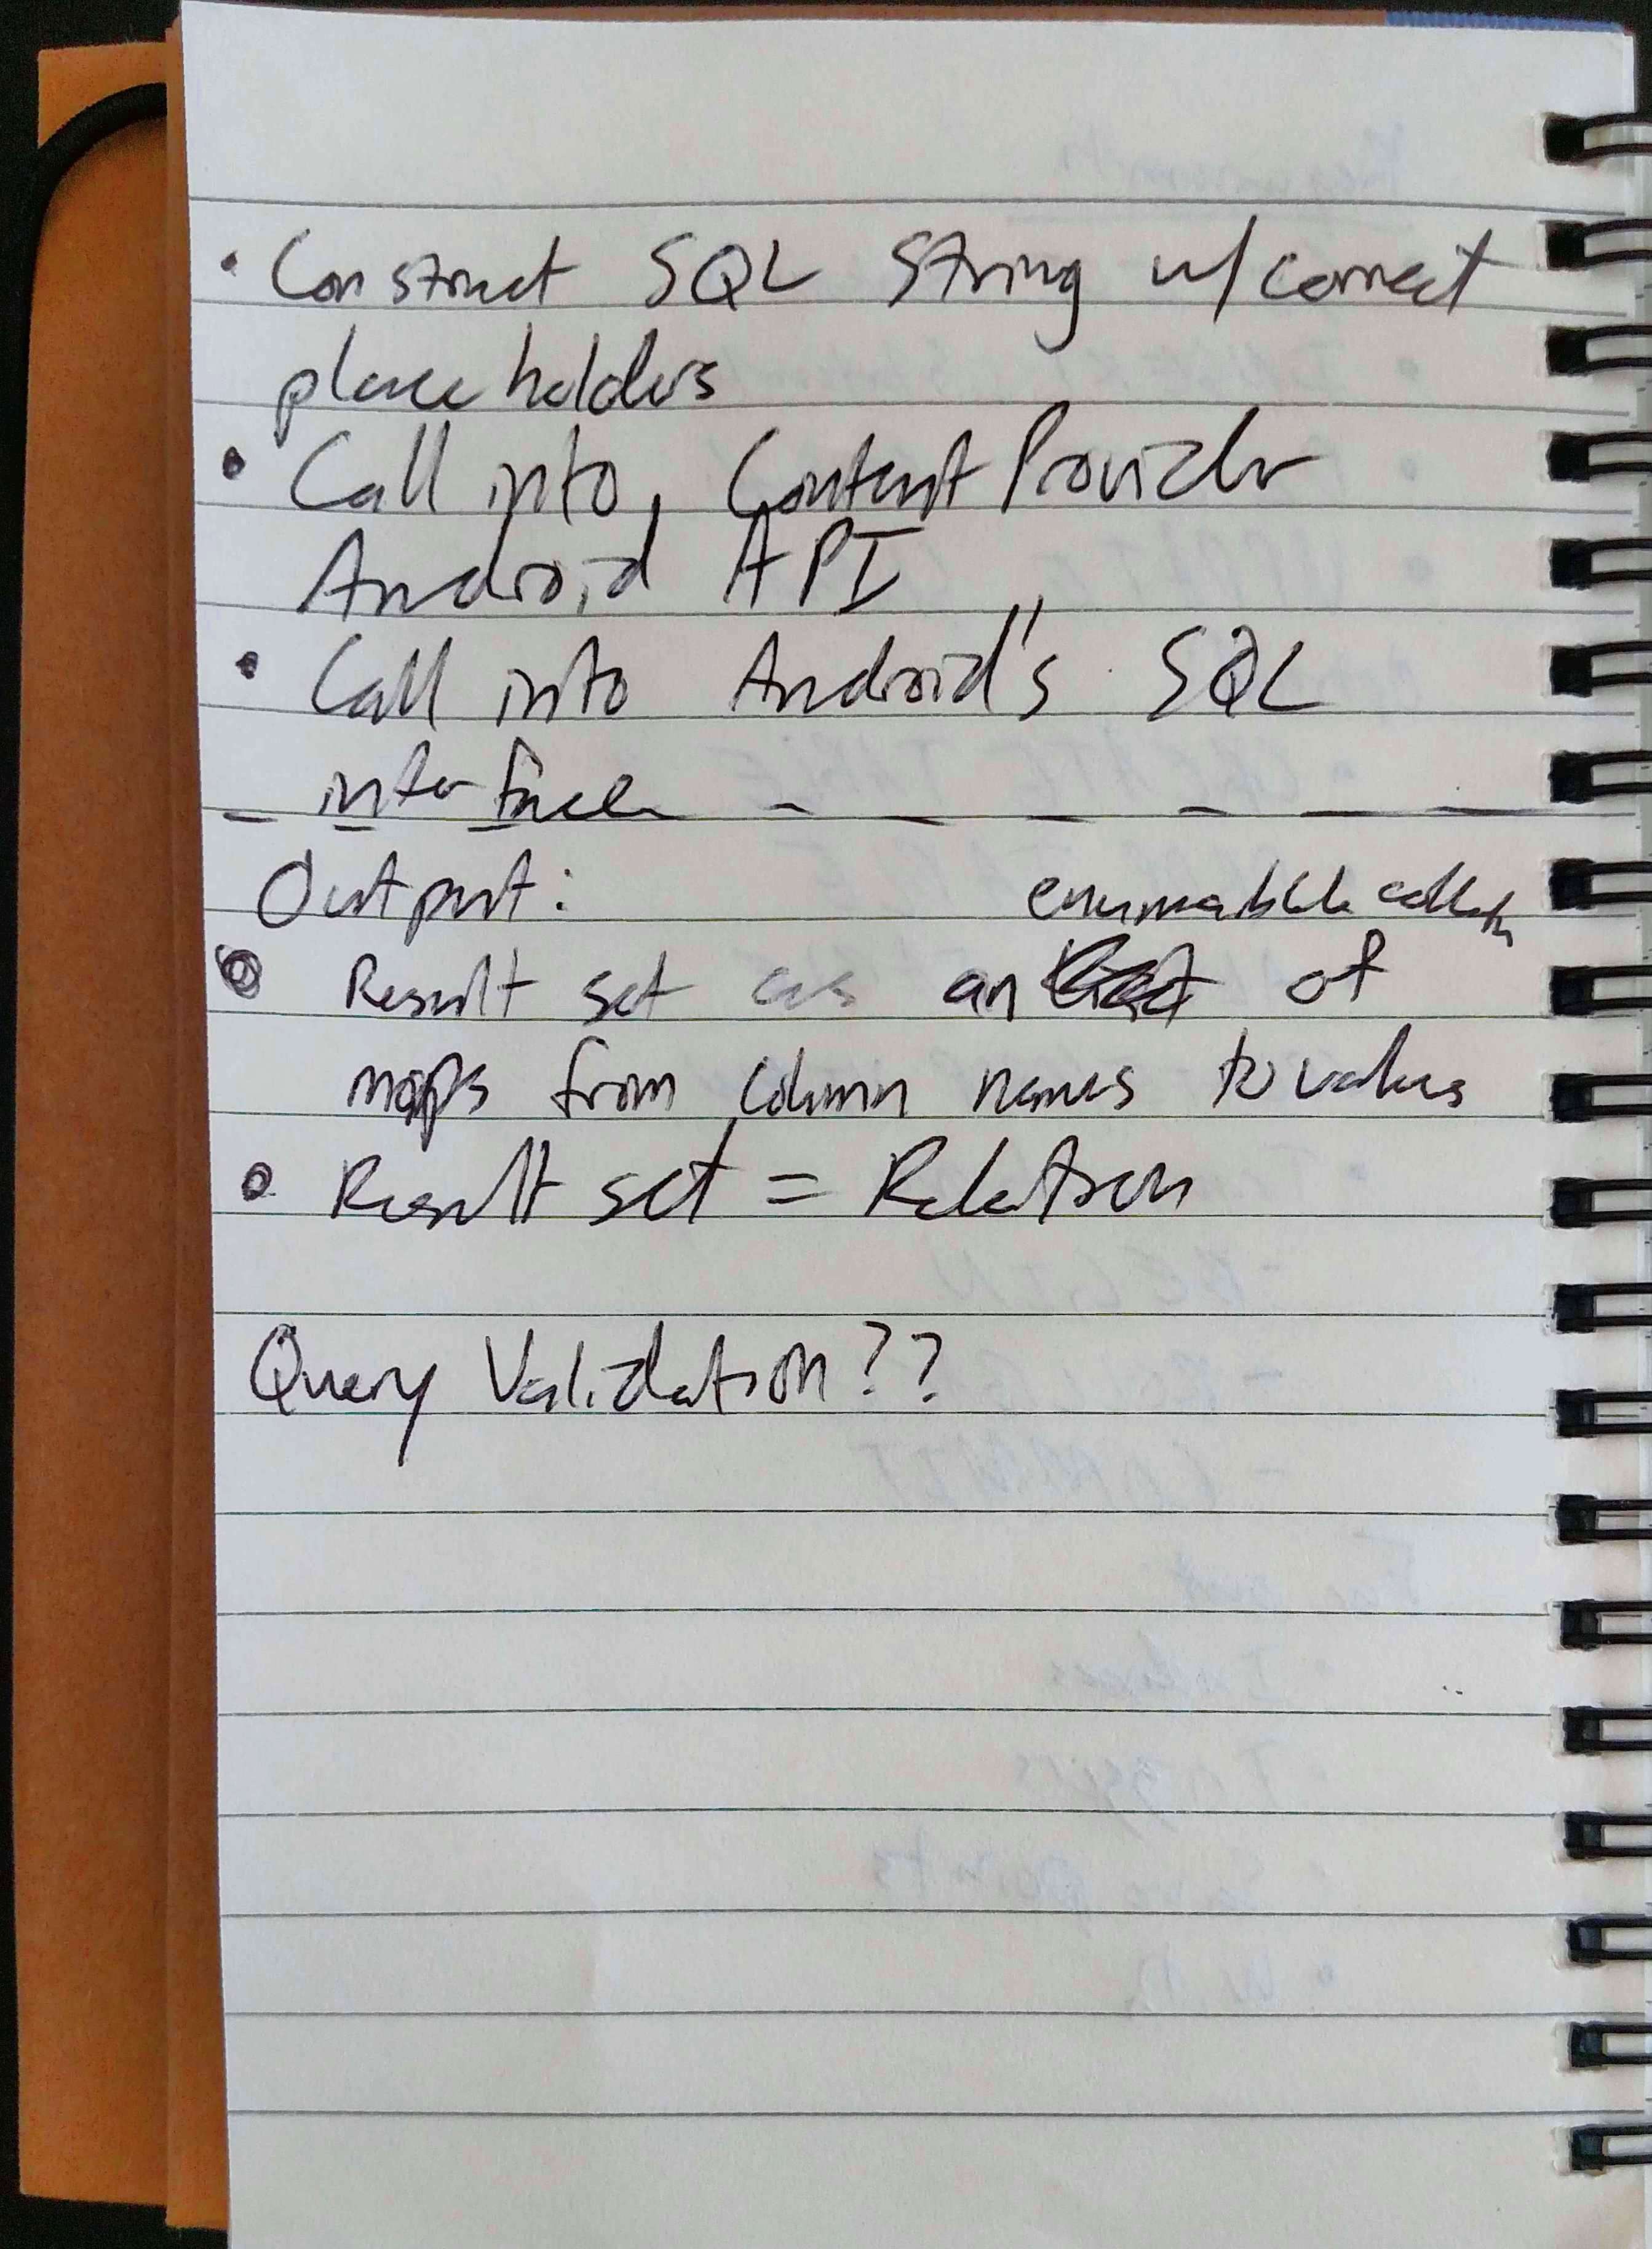 • Construct SQL String w/ correct
placeholders
• Call into Content Provider
Android API
• Call into Android's SQL
interface
Output:
enumerable
• Result set as an of
maps from column names to values
• Result set = Relation
Query Validation??